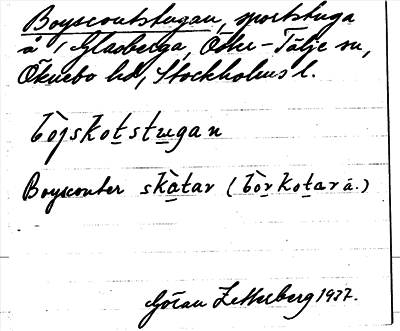 Boyscoutstugan, sportstuga
å 1 Glasberga, Öster-Tälje sn,
Öknebo hd, Stockholms l.
bòjskotstugan
Boyscouter skàtar (bòrkotar ä.)
Göran Zetterberg 1937.